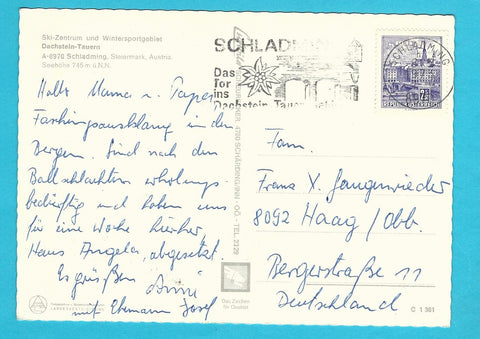 Ski-Zentrum und Wintersportgebiet
Dachstein-Tauern
A-8970 Schladming, Steiermark, Austria.
Seehöhe 745 m ü.N.N.
SCHLADMING
Das
Tor
ins
Dachstein-Tauern
SCHLADMING
REPUBLIK ÖSTERREICH
Hallo Mama u. Papa,
Faschingsausklang in den
Bergen. Sind nach den
Ballschlachten erholungs-
bedürftig und haben uns
für eine Woche hierher,
Haus Angela, abgesetzt.
Es grüßen Anni
mit Ehemann Josef
Fam.
Franz X.
8092 Haag/Obb.
Bergerstraße 11
Deutschland
Das Zeichen
für Qualität
C 1361